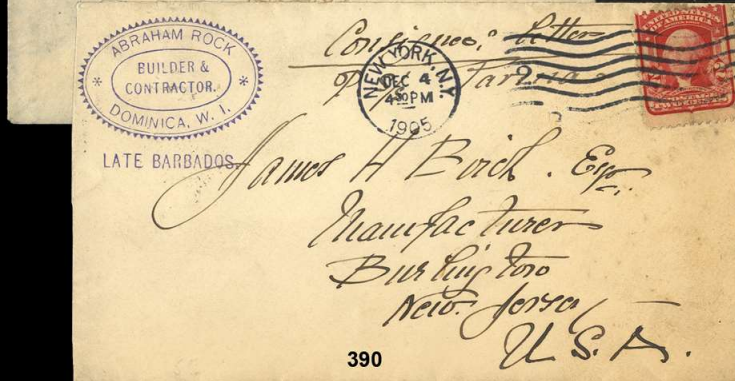 ABRAHAM ROCK
BUILDER &
CONTRACTOR.
DOMINICA, W. I.
LATE BARBADOS.
Consignees' letter
p
NEW YORK, N.Y.
DEC 4
4 30 PM
1905
UNITED STATES
OF AMERICA
2 2
James H Birch . Esq.
Manufacturer
Burlington
New. Jersey
U. S. A.
390